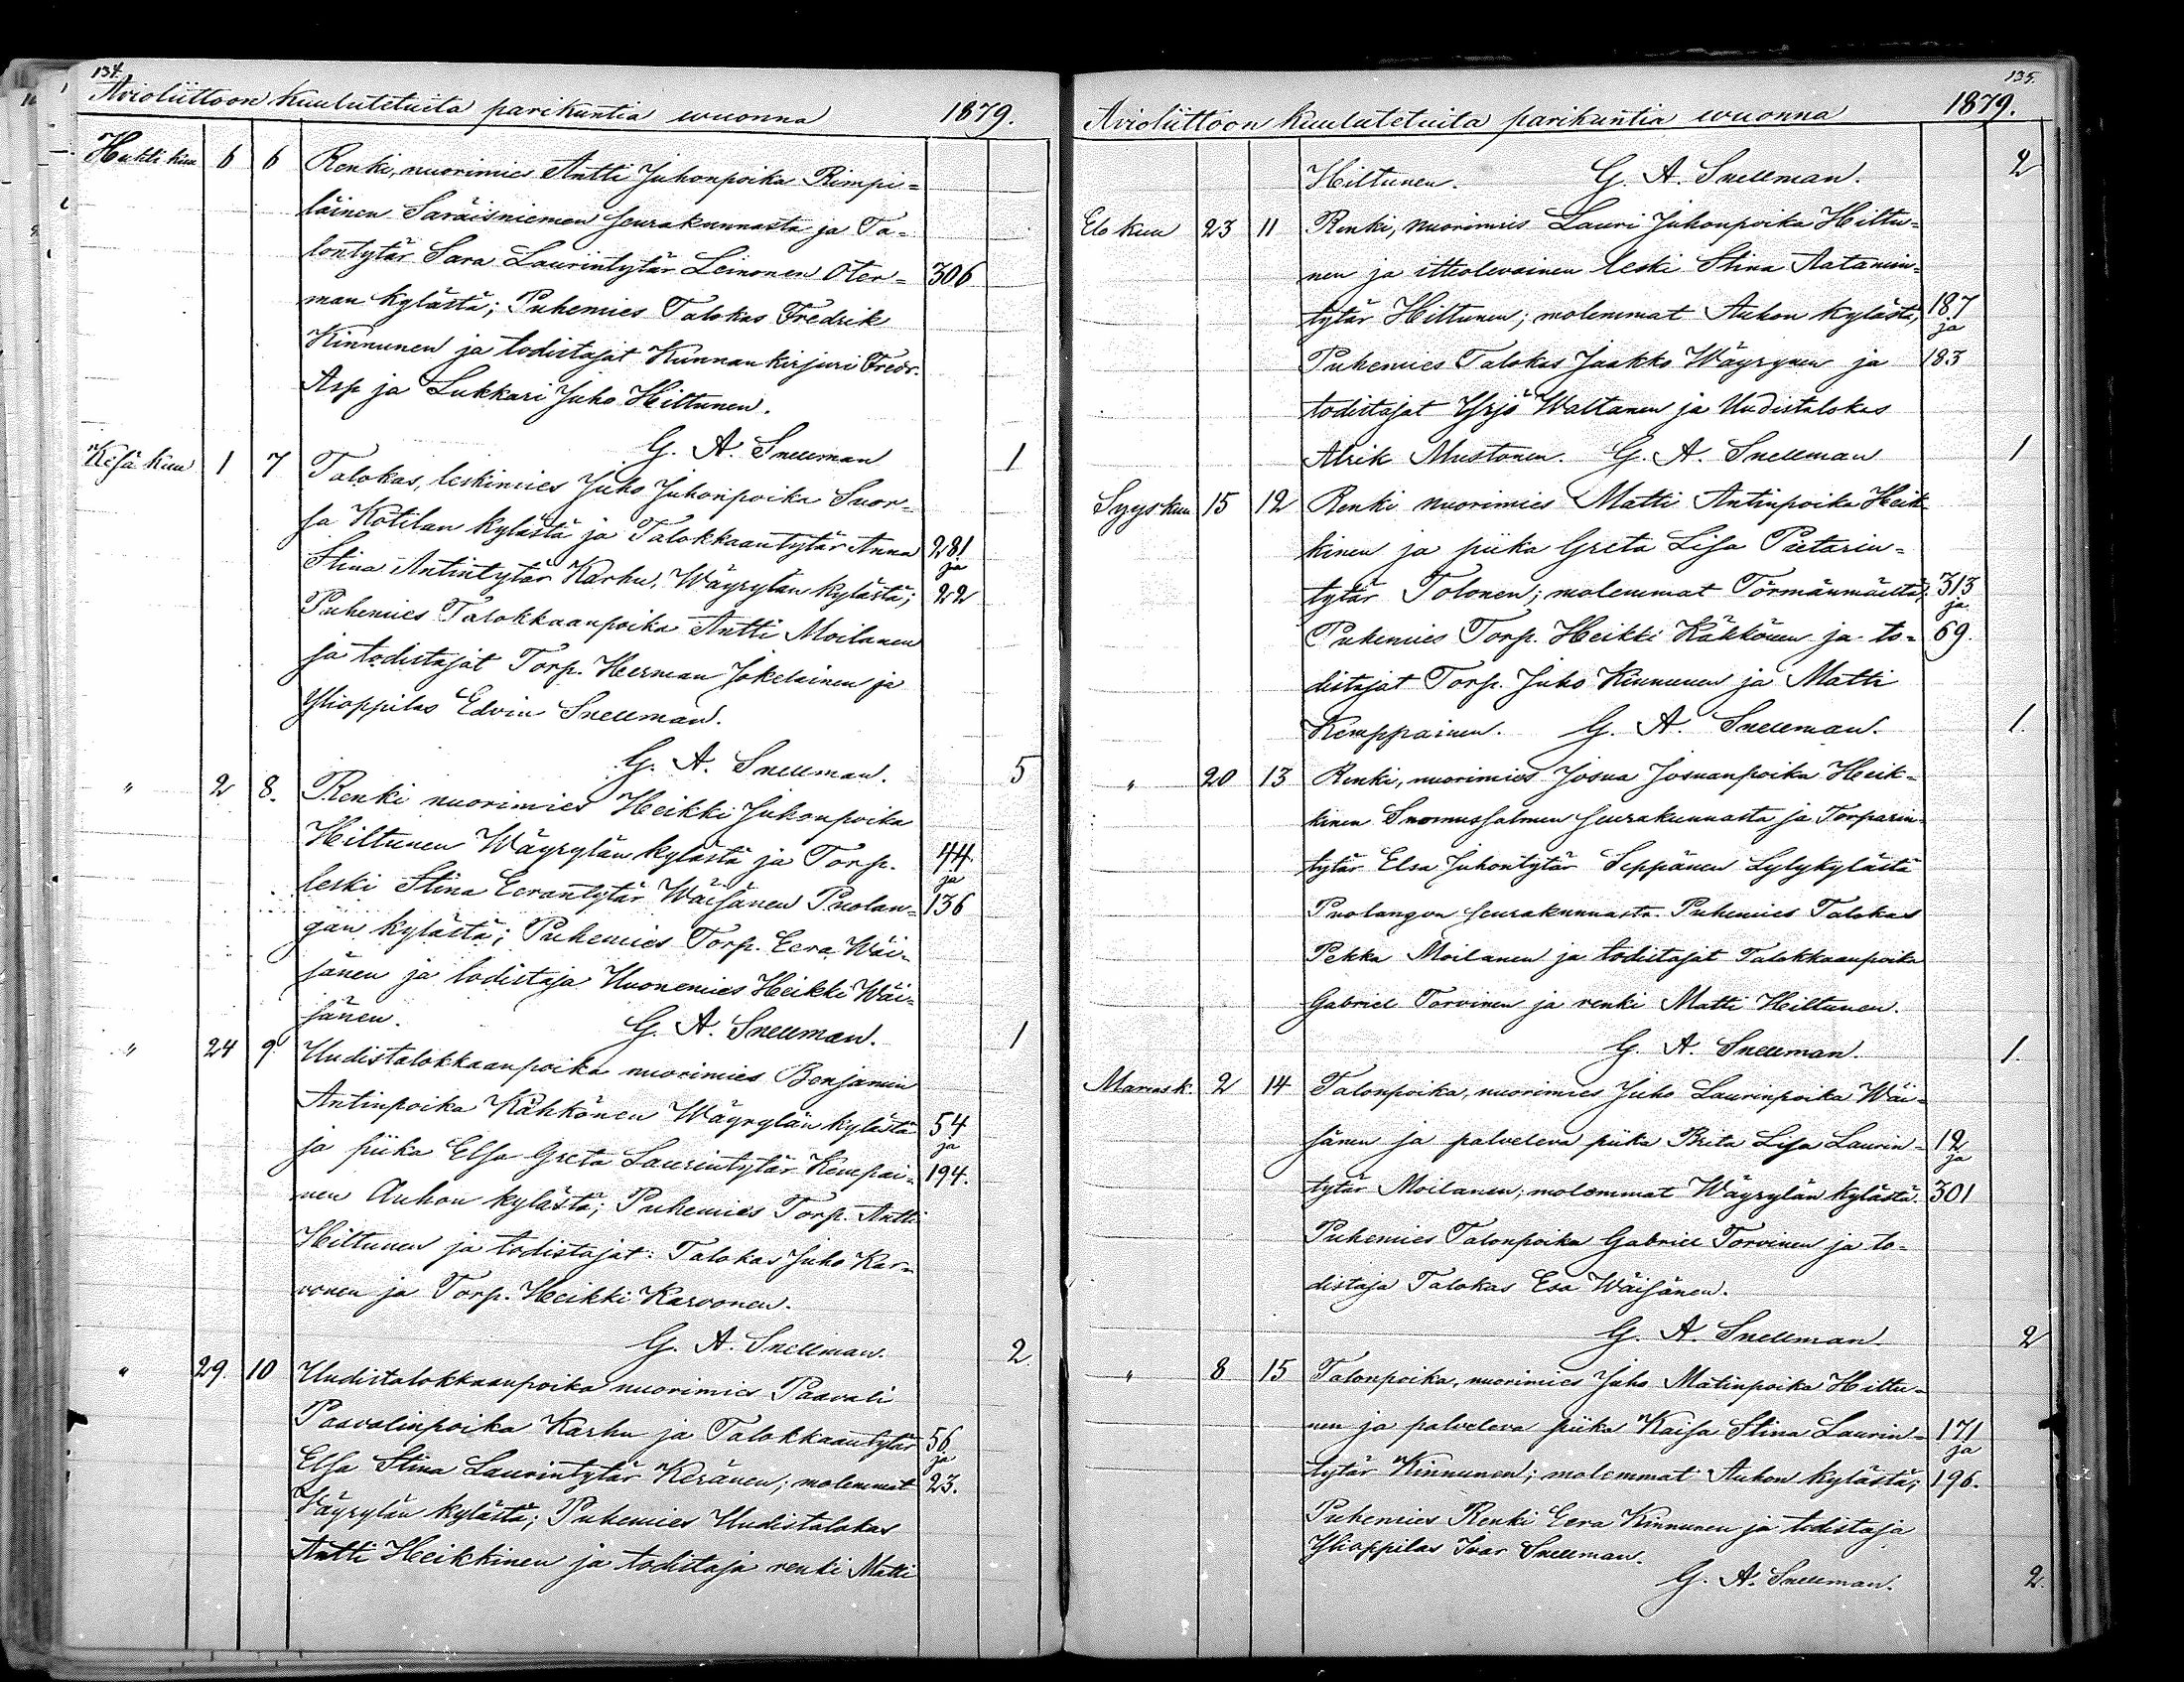 134.
Avioliittoon kuulutetuita parikuntia wuonna 1879.
Huhti kuu 6 6 Renki, nuorimies Antti Juhonpoika Rimpi=
läinen Säräisniemen seurakunnasta ja Ta=
lontytär Sara Laurintytär Leinonen Oter= 306
man kylästä; Puhemies Talokas Fredrik
Kinnunen ja todistajat Kunnan kirjuri Fredr.
Asp ja Lukkari Juho Hiltunen.
G. A. Snellman 1
Kesä kuu 1 7 Talokas, leskimies Juho Juhonpoika Suor=
sa Kotilan kylästä ja Talokkaantytär Anna 281
ja
Stina Antintytär Karhu, Wäyrylän kylästä; 22
Puhemies Talokkaanpoika Antti Moilanen
ja todistajat Torp. Herman Jokelainen ja
Ylioppilas Edvin Snellman.
G. A. Snellman. 5
" 2 8. Renki nuorimies Heikki Juhonpoika
Hiltunen Wäyrylän kylästä ja Torp. 44.
ja
leski Stina Eerantytär Wäisänen Puolan= 136
gan kylästä; Puhemies Torp. Eera Wäi=
sänen ja todistaja Huonemies Heikki Wäi=
sänen. G. A. Snellman. 1
" 24 9 Uudistalokkaanpoika nuorimies Benjamin
Antinpoika Kähkönen Wäyrylän kylästä 54
ja
ja piika Elsa Greta Laurintytär Kempai= 194.
nen Auhon kylästä; Puhemies Torp. Antti
Hiltunen ja todistajat: Talokas Juho Kar=
vonen ja Torp. Heikki Karvonen.
G. A. Snellman. 2.
" 29. 10 Uudistalokkaanpoika nuorimies Paavali
Paavalinpoika Karhu ja Talokkaantytär 56.
ja
Elsa Stina Laurintytär Keränen; molemmat 23.
Wäyrylän kylästä; Puhemies Uudistalokas
Antti Heikkinen ja todistaja renki Matti
135.
Avioliittoon kuulutetuita parikuntia wuonna 1879.
Hiltunen. G. A. Snellman. 2
Elo kuu 23 11 Renki, nuorimies Lauri Juhonpoika Hiltu=
nen ja itteolevainen leski Stina Aatamin=
tytär Hiltunen; molemmat Auhon kylästä; 187
ja
Puhemies Talokas Jaakko Wäyrynen ja 183
todistajat Yrjö Waltanen ja Uudistalokas
Alrik Mustonen. G. A. Snellman 1
Syys kuu 15 12 Renki nuorimies Matti Antinpoika Heik=
kinen ja piika Greta Lisa Pietarin=
tytär Tolonen; molemmat Törmänmäeltä; 313
ja
Puhemies Torp. Heikki Kähkönen ja to= 69.
distajat Torp. Juho Kinnunen ja Matti
Kemppainen. G. A. Snellman. 1.
" 20 13 Renki, nuorimies Josua Josuanpoika Heik=
kinen Suomussalmen seurakunnasta ja Torparin=
tytär Elsa Juhontytär Seppänen Lylykylästä
Puolangon seurakunnasta. Puhemies Talokas
Pekka Moilanen ja todistajat Talokkaanpoika
Gabriel Torvinen ja renki Matti Hiltunen.
G. A. Snellman. 1.
Marras k. 2 14 Talonpoika, nuorimies Juho Laurinpoika Wäi=
sänen ja palveleva piika Brita Lisa Laurin= 12
ja
tytär Moilanen; molemmat Wäyrylän kylästä. 301
Puhemies Talonpoika Gabriel Torvinen ja to=
distaja Talokas Esa Wäisänen.
G. A. Snellman. 2
" 8 15 Talonpoika, nuorimies Juho Matinpoika Hiltu=
nen ja palveleva piika Kaisa Stina Laurin= 171
ja
tytär Kinnunen; molemmat Auhon kylästä; 196.
Puhemies Renki Eera Kinnunen ja todistaja
Ylioppilas Ivar Snellman.
G. A. Snellman. 2.